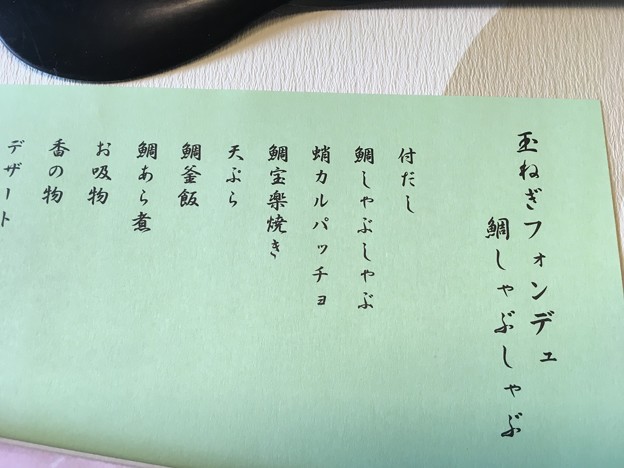 玉ねぎフォンデュ
鯛しゃぶしゃぶ
付だし
鯛しゃぶしゃぶ
蛸カルパッチョ
鯛宝楽焼き
天ぷら
鯛釜飯
鯛あら煮
お吸物
香の物
デザート